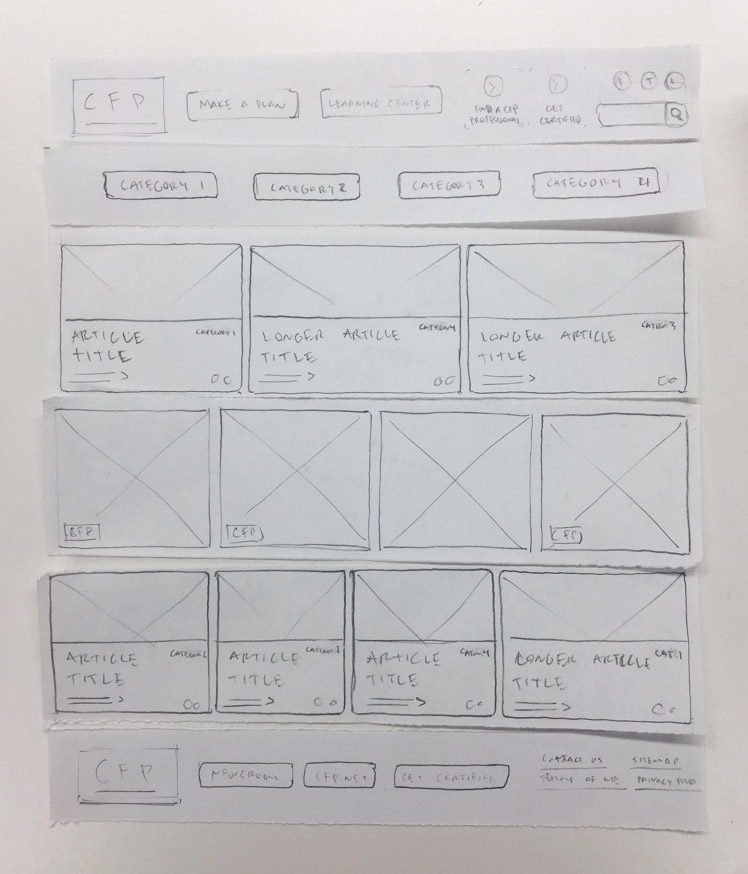 CFP
MAKE A PLAN
LEARNING CENTER
FIND A CFP
PROFESSIONAL
GET
CERTIFIED
F T L
CATEGORY 1
CATEGORY 2
CATEGORY 3
CATEGORY 4
ARTICLE
TITLE
CATEGORY 1
LONGER ARTICLE
TITLE
CATEGORY
LONGER ARTICLE
TITLE
CFP
CFP
CFP
ARTICLE
TITLE
ARTICLE
TITLE
ARTICLE
TITLE
LONGER ARTICLE
TITLE
CFP
NEWSROOM
CFP.NET
GET CERTIFIED
CONTACT US
SITEMAP
TERMS OF USE
PRIVACY